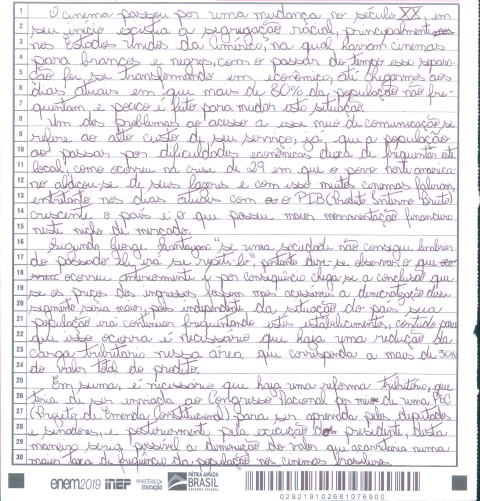 O cinema passou por uma mudança no século XX em
seu início existia a segregação racial, principalmente
nos Estados Unidos da América, na qual haviam cinemas
para brancos e negros, com o passar do tempo essa separa-
ção foi se transformando em econômica, até chegarmos aos
dias atuais em que mais de 80% da população não fre-
quentam, e pouco é feito para mudar esta situação.
Um dos problemas ao acesso a esse meio de comunicação se
refere ao alto custo de seu serviço, já que a população
ao passar por dificuldades econômicas deixa de frequentar este
local, como ocorreu na crise de 29 em que o povo norte america
no abdicou-se de seus lazeres e com isso muitos cinemas faliram,
entretanto nos dias atuais com o PIB (Produto Interno Bruto)
crescente o país é o que possui maior movimentação financeira
neste nicho de mercado.
Segundo George Santayana "se uma sociedade não consegue lembrar
do passado irá repeti-lo", portanto deve-se observar o que
ocorreu anteriormente e por consequência chega-se a conclusão que
se os preços dos ingressos fossem mais acessíveis a democratização desse
segmento seria maior, pois independente da situação do país sua
população irá continuar frequentando estes estabelecimentos, contudo para
que isso ocorra é necessário que haja uma redução da
carga tributária nessa área que corresponda a mais de 30%
do valor total do produto.
Em suma, é necessário que haja uma reforma tributária, que
teria de ser enviada ao Congresso Nacional por meio de uma PEC
(Projeto de Emenda Constitucional) para ser aprovada pelos deputados
e senadores, e posteriormente pela execução do presidente, desta
maneira seria possível a diminuição do valor que acarretaria numa
maior taxa de frequência da população nos cinemas brasileiros.
enem2019 inep MINISTÉRIO DA EDUCAÇÃO PÁTRIA AMADA BRASIL GOVERNO FEDERAL
028219102681076900